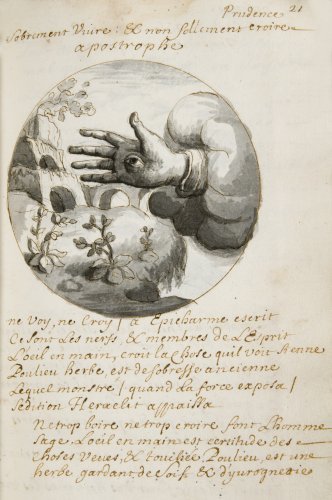 Prudence 21
Sobrement Vivre: & non follement croire
apostrophe
ne Voy, ne Croy / a Epicharme escrit
Ce sont Les nerfs, & membres de L'Esprit
L'oeil en main, croit la chose quil voit &
Poulieu herbe, est de sobresse ancienne
Lequel monstre / quand la force exposa /
sedition Heraclit appaisa
Ne trop boire ne trop croire font L'homme
Sage, L'oeil en main est certitude des
choses veues, & Poulieu, est une
herbe gardant de soif, & d'yurognerie